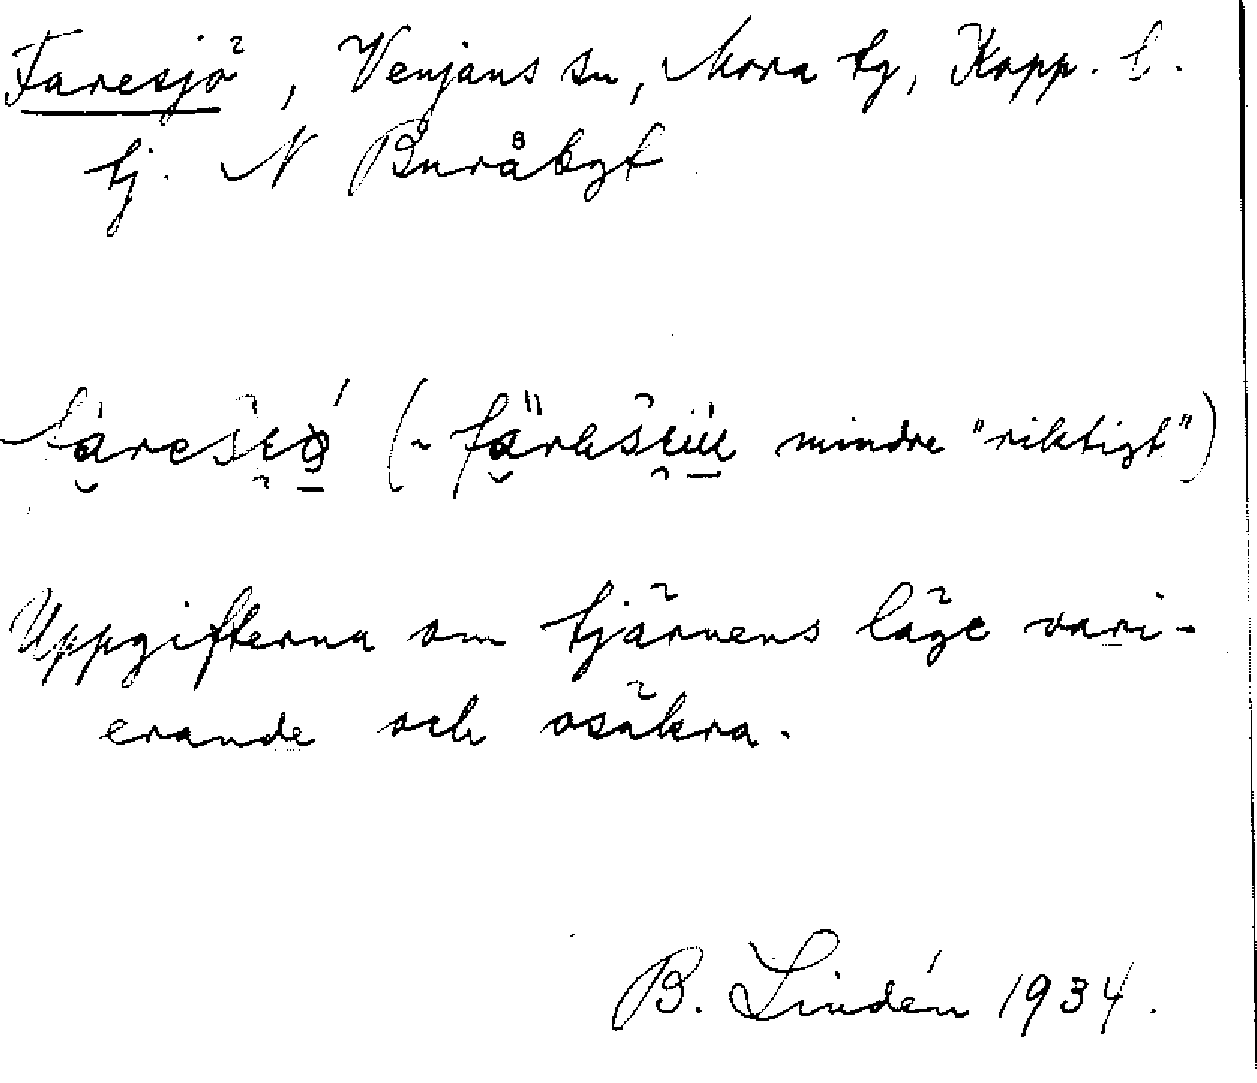 Faresjö, Venjans sn, Mora tg, Kopp. l.
tj. N Buråbyt
(~ mindre "riktigt")
Uppgifterna om tjärnens läge vari-
erande och osäkra.
B. Lindén 1934.